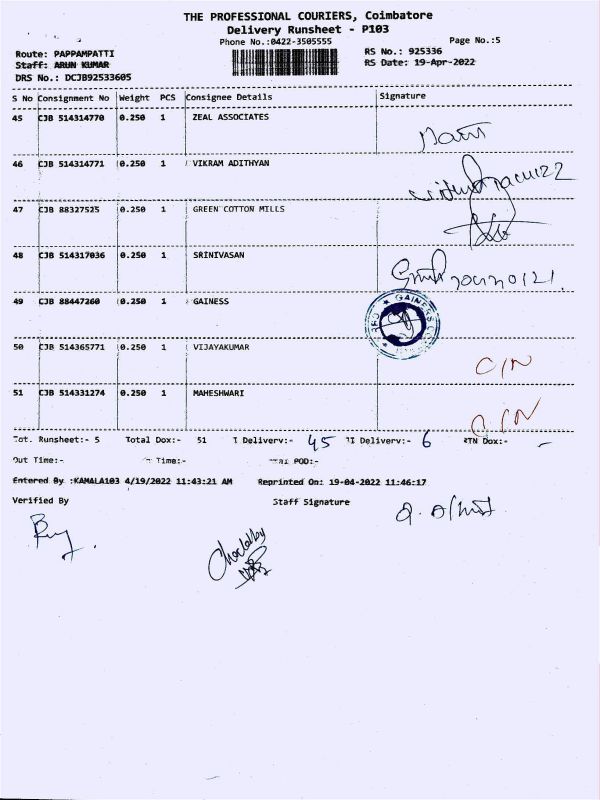 THE PROFESSIONAL COURIERS, Coimbatore
Delivery Runsheet - P103
Phone No.:0422-3505555
Page No.:5
Route: PAPPAMPATTI
RS No.: 925336
Staff: ARUN KUMAR
RS Date: 19-Apr-2022
DRS No.: DCJB92533605
S No Consignment No Weight PCS Consignee Details Signature
45 CJB 514314770 0.250 1 ZEAL ASSOCIATES
46 CJB 514314771 0.250 1 VIKRAM ADITHYAN
47 CJB 88327525 0.250 1 GREEN COTTON MILLS
48 CJB 514317036 0.250 1 SRINIVASAN
49 CJB 88447260 0.250 1 GAINESS
50 CJB 514365771 0.250 1 VIJAYAKUMAR
C/N
51 CJB 514331274 0.250 1 MAHESHWARI
Tot. Runsheet:- 5 Total Dox:- 51 T Delivery:- 45 TI Delivery:- 6 RTN Dox:- -
Out Time:- Time:- POD:-
Entered By :KAMALA103 4/19/2022 11:43:21 AM Reprinted On: 19-04-2022 11:46:17
Verified By Staff Signature